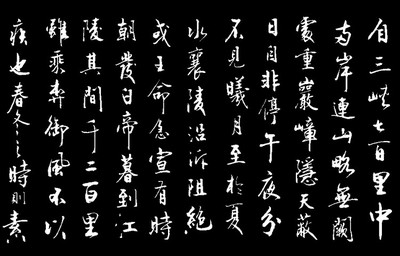 自三峡七百里中
两岸連山略無闕
處重巖嶂隱天蔽
日自非停午夜分
不見曦月至於夏
水襄陵沿泝阻絕
或王命急宣有時
朝發白帝暮到江
陵其間千二百里
雖乘奔御風不以
疾也春冬之時則素